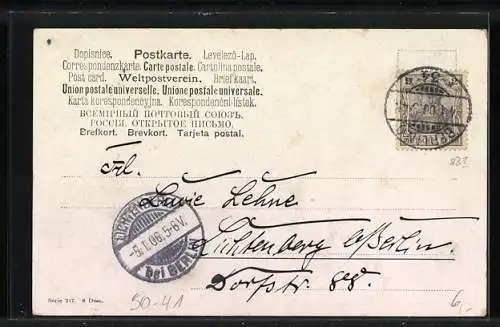 Dopisnice. Postkarte. Levelező-Lap.
Correspondenzkarte. Carte postale. Cartolina postale.
Post card. Weltpostverein. Briefkaart.
Union postale universelle. Unione postale universale.
Karta korespondencyjna. Korespondenční-lístek.
ВСЕМІРНЫЙ ПОЧТОВЫЙ СОЮЗЪ.
РОССІЯ. ОТКРЫТОЕ ПИСЬМО.
Brefkort. Brevkort. Tarjeta postal.
Frl.
Lehne
Lichtenberg b/Berlin.
Dorfstr
-8.1.06.5-6V.
bei BERLIN
50-41
Serie 717. 6 Dess.